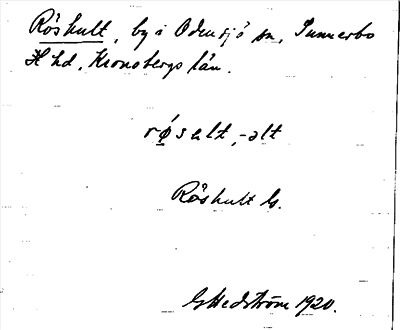 Röshult, by i Odensjö sn, Sunnerbo
Hd, Kronobergs län.
røsult, -əlt
Röshult G.
GHedström 1920.